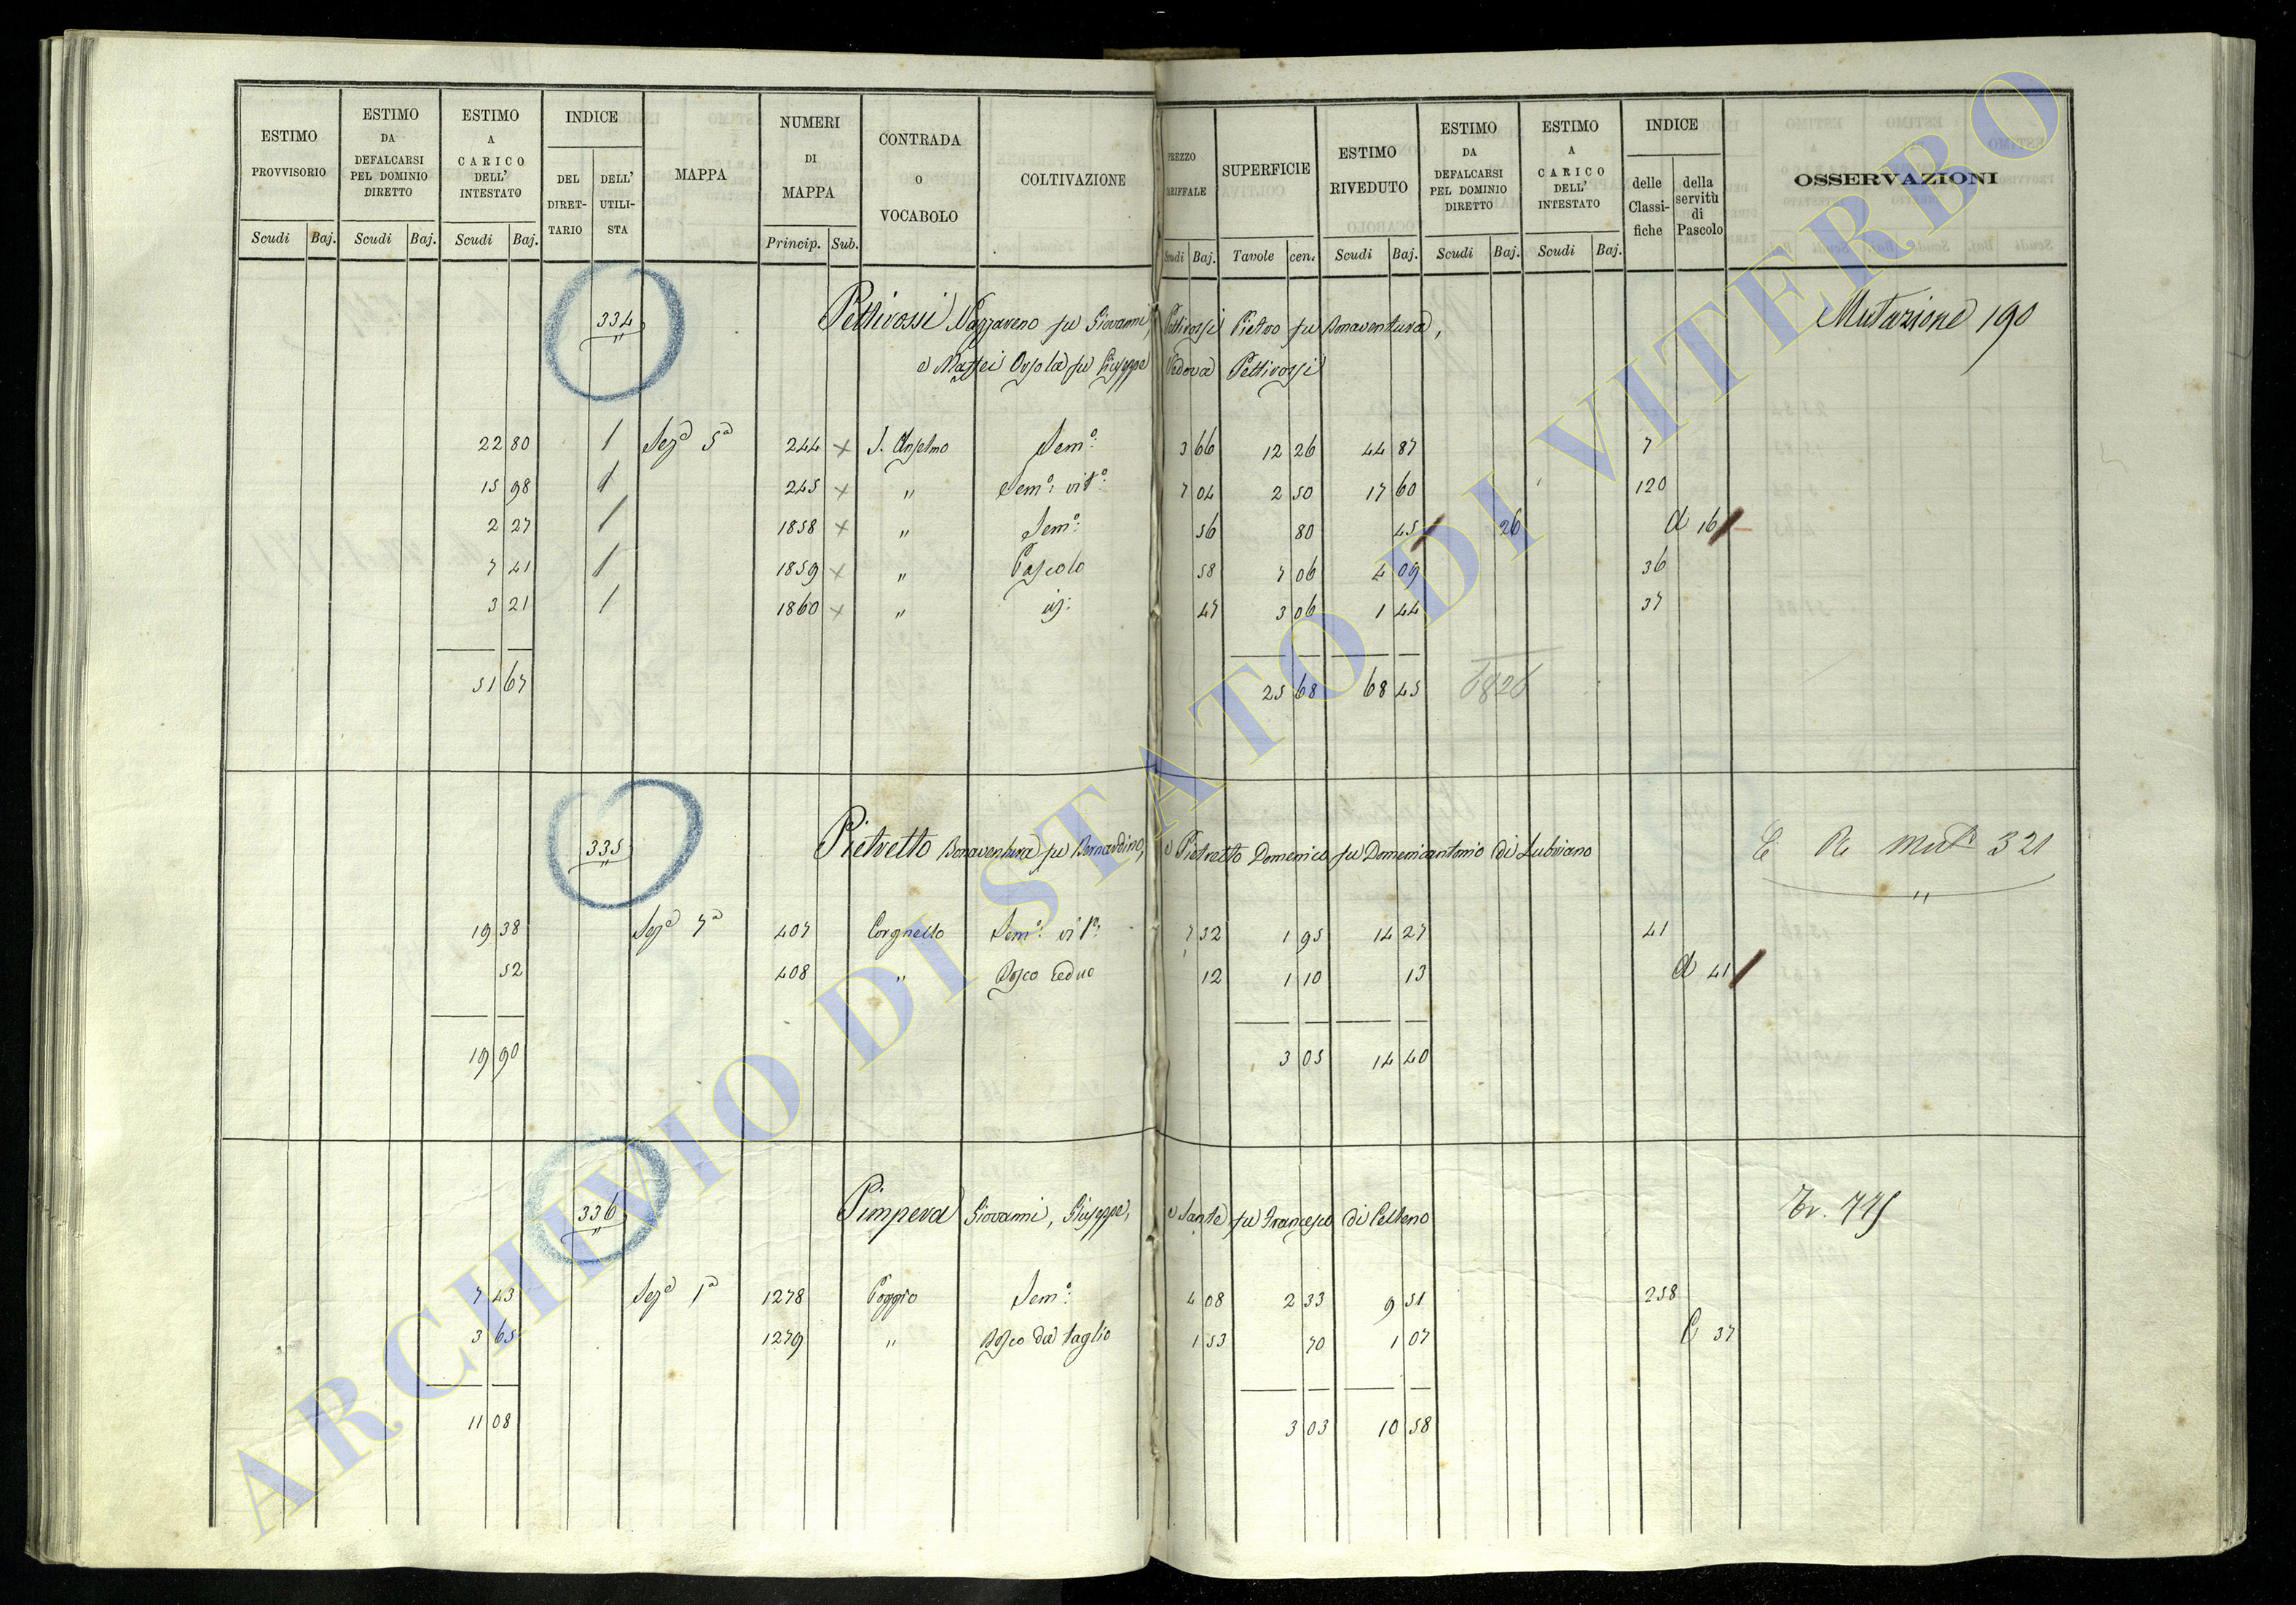 ESTIMO PROVVISORIO
ESTIMO DA DEFALCARSI PEL DOMINIO DIRETTO
ESTIMO A CARICO DELL' INTESTATO
INDICE
DEL DIRET-TARIO
DELL' UTILI-STA
MAPPA
NUMERI DI MAPPA
CONTRADA O VOCABOLO
COLTIVAZIONE
PREZZO TARIFFALE
SUPERFICIE
ESTIMO RIVEDUTO
ESTIMO DA DEFALCARSI PEL DOMINIO DIRETTO
ESTIMO A CARICO DELL' INTESTATO
INDICE
delle Classi-fiche
della servitù di Pascolo
OSSERVAZIONI
Scudi Baj. Scudi Baj. Scudi Baj. Princip. Sub. Scudi Baj. Tavole cen. Scudi Baj. Scudi Baj. Scudi Baj.
334 Pettirossi Nazzareno fu Giovanni, Pettirossi Pietro fu Bonaventura, Mutazione 190
e Massei Orsola fu Giuseppe Vedova Pettirossi
22 80 1 Sez.a 5a 244 x S. Anselmo Sem.o: 3 66 12 26 44 87 7
15 98 1 245 x " Sem.o: vit.o: 7 04 2 50 17 60 120
2 27 1 1858 x " Sem.o: 56 80 45 26 d 16
7 41 1 1859 x " Pascolo 58 7 06 4 09 36
3 21 1 1860 x " 47 3 06 1 44 37
51 67 25 68 68 45 6826
335 Pietretto Bonaventura fu Bernardino, e Pietretto Domenico fu Domenicantonio di Lubriano Mut.e 321
19 38 Sez.a 7a 407 Corgnello Sem.o: vit.o: 7 32 1 95 14 27 41
52 408 " Bosco Ceduo 12 1 10 13 d 41
19 90 3 05 14 40
336 Pimpera Giovanni, Giuseppe, e Sante fu Francesco di Celleno Tr. 775
7 43 Sez.a 1a 1278 Poggio Sem.o: 4 08 2 33 9 51 258
3 65 1279 " Bosco da taglio 1 53 70 1 07 C 37
11 08 3 03 10 58
ARCHIVIO DI STATO DI VITERBO